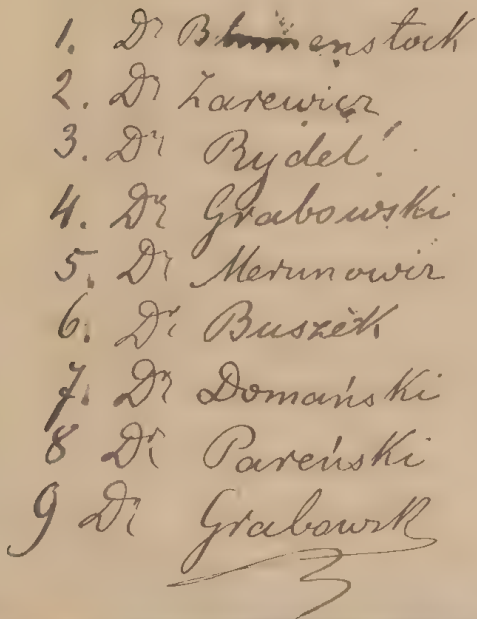 1. Dr Blumenstock
2. Dr Zarewicz
3. Dr Rydel
4. Dr Grabowski
5. Dr Merunowicz
6. Dr Buszek
7. Dr Domański
8 Dr Pareński
9 Dr Grabowsk